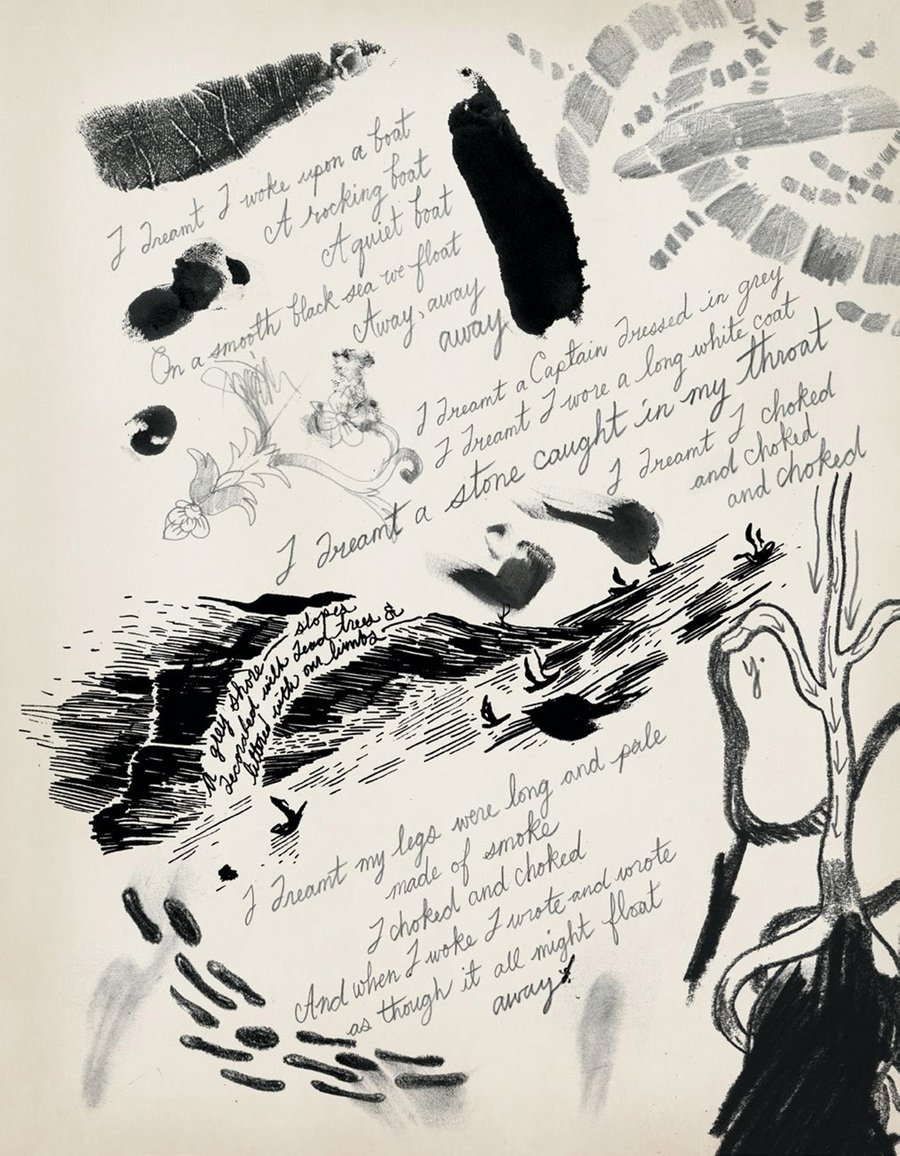 I dreamt I woke upon a boat
A rocking boat
A quiet boat
On a smooth black sea we float
Away, away
away
I dreamt a Captain dressed in grey
I dreamt I wore a long white coat
I dreamt a stone caught in my throat
I dreamt I choked
and choked
and choked
A grey shore slopes
decorated with dead trees &
littered with our limbs
y.
I dreamt my legs were long and pale
made of smoke
I choked and choked
And when I woke I wrote and wrote
as though it all might float
away.